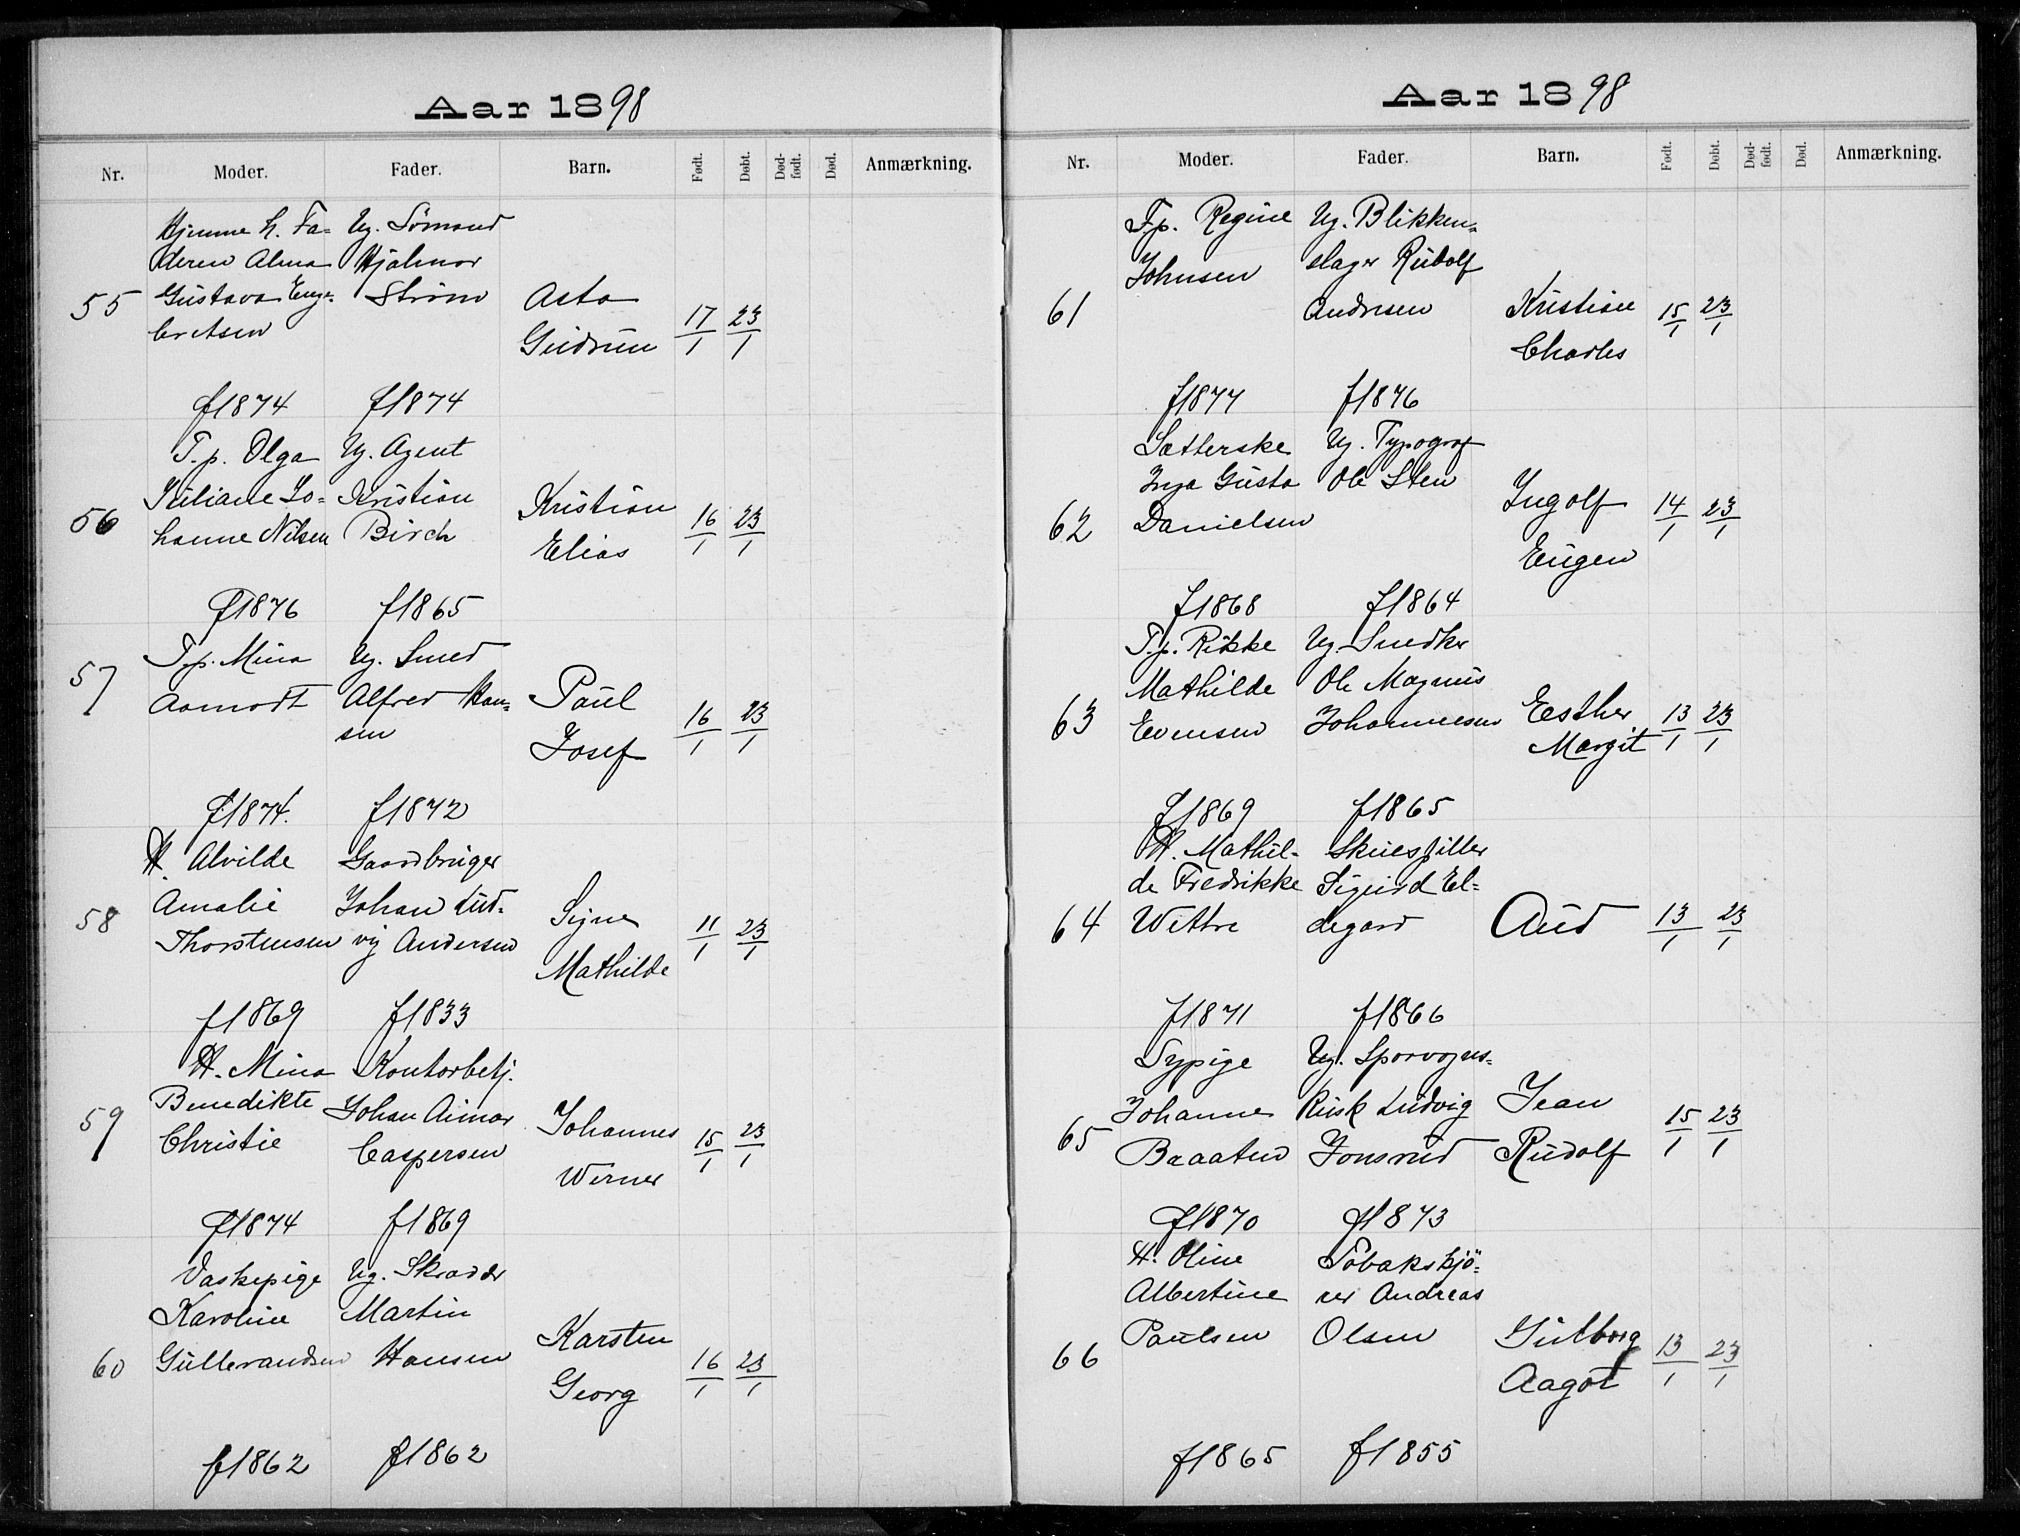 Aar 1898
Nr. Moder. Fader. Barn. Født. Døbt. Død-født. Død. Anmærkning.
Hjemme h. Fa- Ug. Sømand
deren Alma Hjalmar
55 Gustava Enge- Strøm Asta 17/1 23/1
bretsen Gudrun
f 1874 f 1874
T.p. Olga Ug. Agent
Juliane Jo- Kristian Kristian
56 hanne Nilsen Birch Elias 16/1 23/1
f 1876 f 1865
T.p. Mina Ug. Smed
57 Aamodt Alfred Han- Paul 16/1 23/1
sen Josef
f 1874. f 1872
H. Alvilde Gaardbruger
Amalie Johan Lud-
58 Thorstensen vig Andersen Signe 11/1 23/1
Mathilde
f 1869 f 1833
H. Mina Kontorbetj.
Benedikte Johan Aimar
59 Christie Caspersen Johannes 15/1 23/1
Werner
f 1874 f 1869
Vaskepige Ug. Skrædder
Karoline Martin
60 Gullerandsen Hansen Karsten 16/1 23/1
Georg
f 1862 f 1862
Aar 1898
Nr. Moder. Fader. Barn. Født. Døbt. Død-født. Død. Anmærkning.
T.p. Regine Ug. Blikken-
Johnsen slager Rudolf
61 Andresen Kristian 15/1 23/1
Charles
f 1877 f 1876
Sætterske Ug. Typograf
Inga Gusta Ole Sten Ingolf
62 Danielsen Eugen 14/1 23/1
f 1868 f 1864
T.p. Rikke Ug. Snedker
Mathilde Ole Magnus
63 Evensen Johannesen Esther 13/1 23/1
Margit
f 1869 f 1865
H. Mathil- Skuespiller
de Fredrikke Sigurd El-
64 Wettre degard Aud 13/1 23/1
f 1871 f 1866
Sypige Ug. Sporvogns-
Johanne Kusk Ludvig Jean
65 Braaten Jonsrud Rudolf 15/1 23/1
f 1870 f 1873
H. Oline Tobakskjö-
Albertine rer Andreas
66 Paulsen Olsen Gulborg 13/1 23/1
Aagot
f 1865 f 1855